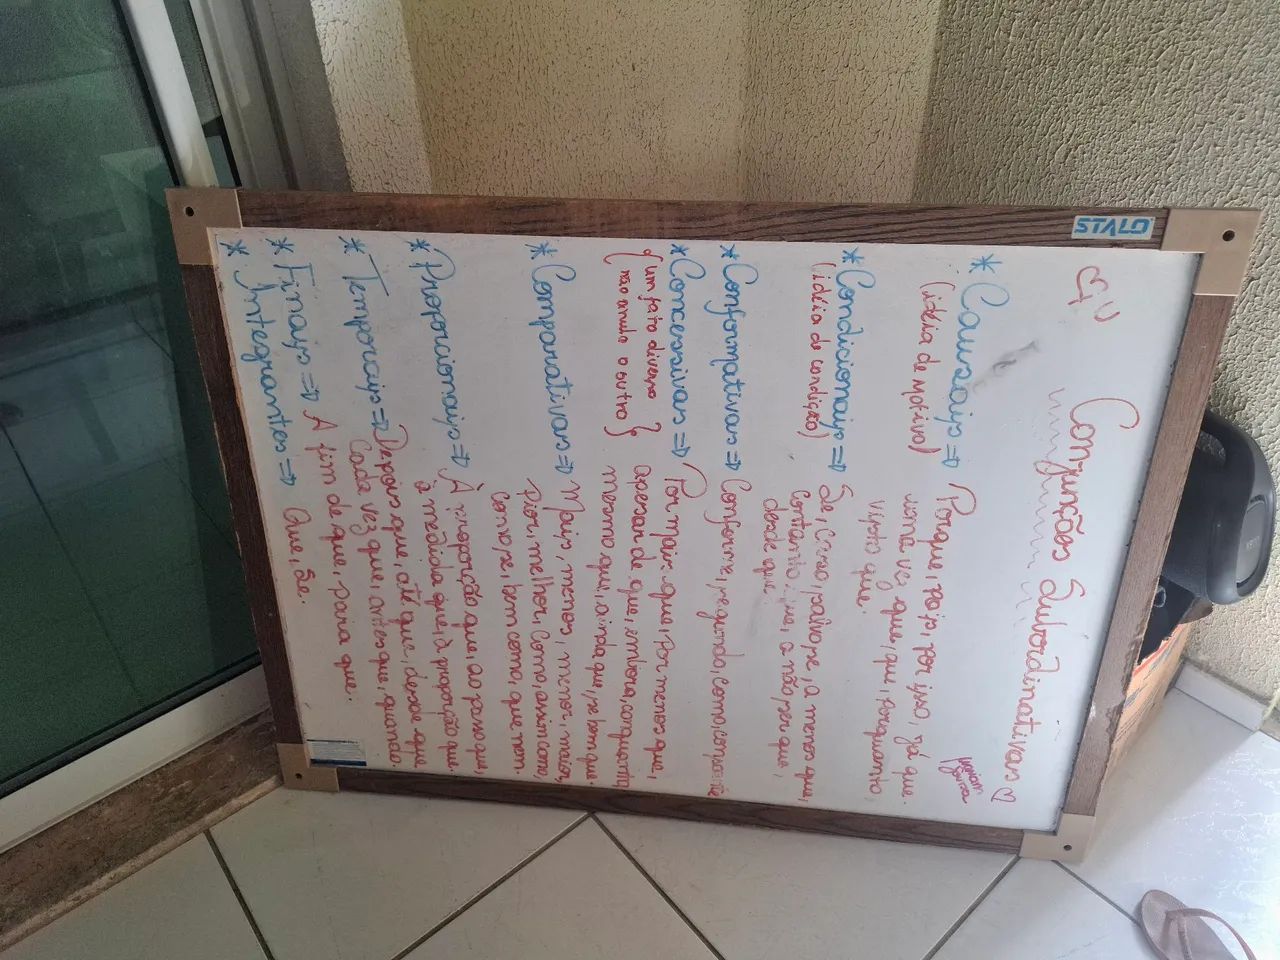 STALO
Conjunções Subordinativas ♡
* Causais ⇒ Porque, pois, por isso, já que
(idéia de motivo) uma vez que, que, porquanto,
visto que.
* Condicionais ⇒ Se, caso, salvo se, a menos que,
(idéia de condição) contanto que, a não ser que,
desde que.
* Conformativas ⇒ Conforme, segundo, como, consoante
* Concessivas ⇒ Por mais que, por menos que,
{um fato diverso apesar de que, embora, conquanto,
não anula o outro} mesmo que, ainda que, se bem que.
* Comparativas ⇒ Mais, menos, menor, maior,
pior, melhor, como, assim como,
como se, bem como, que nem.
* Proporcionais ⇒ À proporção que, ao passo que,
à medida que, à proporção que.
* Temporais ⇒ Depois que, até que, desde que
Cada vez que, antes que, quando.
* Finais ⇒ A fim de que, para que.
* Integrantes ⇒ Que, Se.